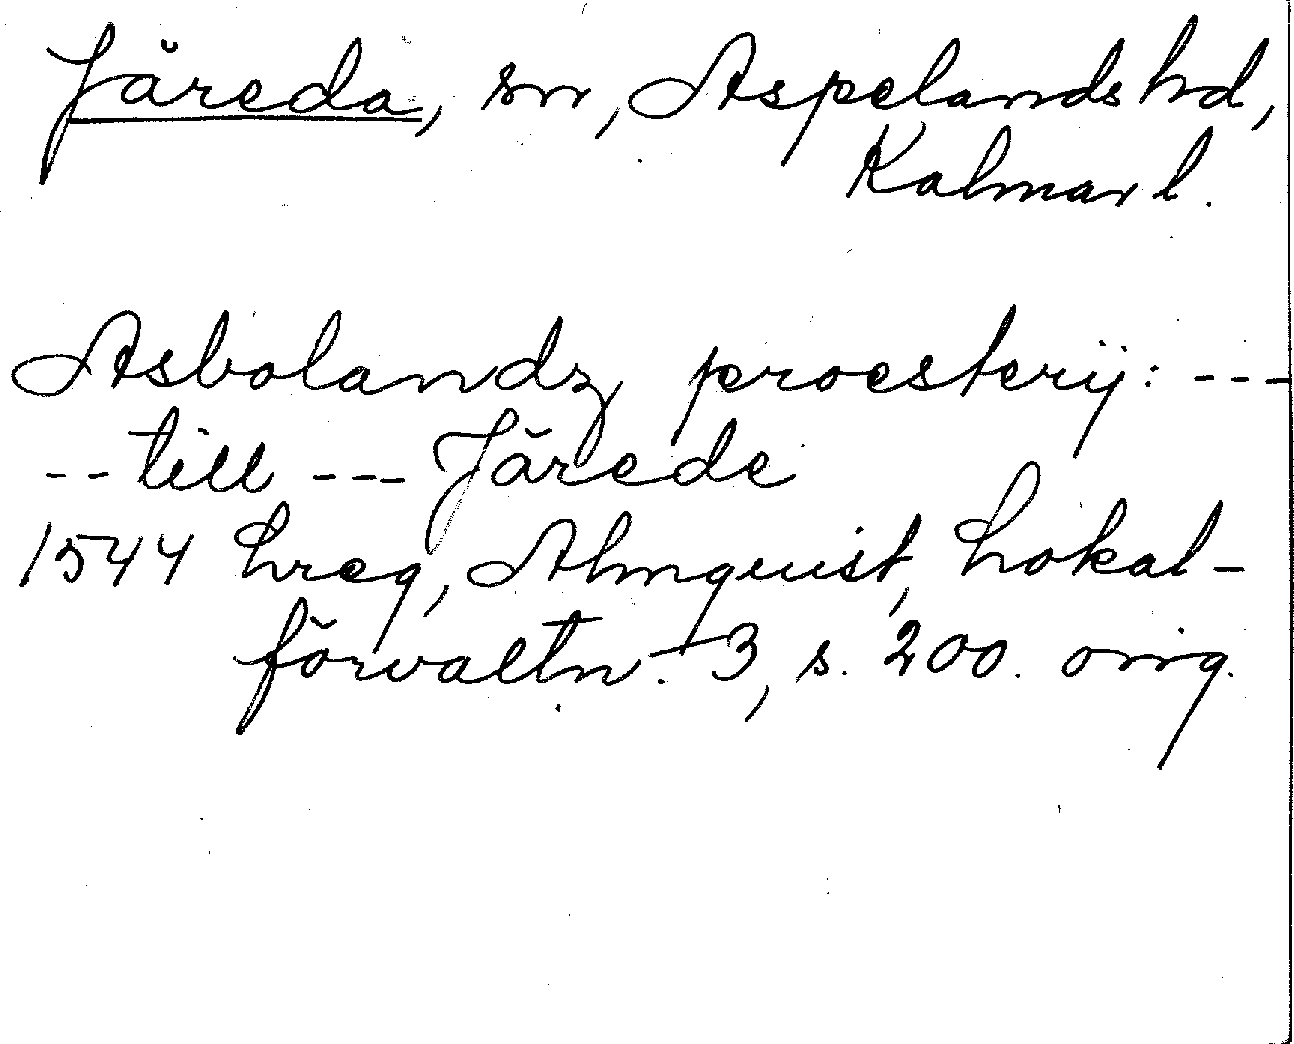 Järeda, sn, Aspelands hd,
Kalmar l.
Asbolandz proesterij: ---
-- till --- Järede
1544 hreg, Almquist, Lokal-
förvaltn. 3, s. 200. orig.